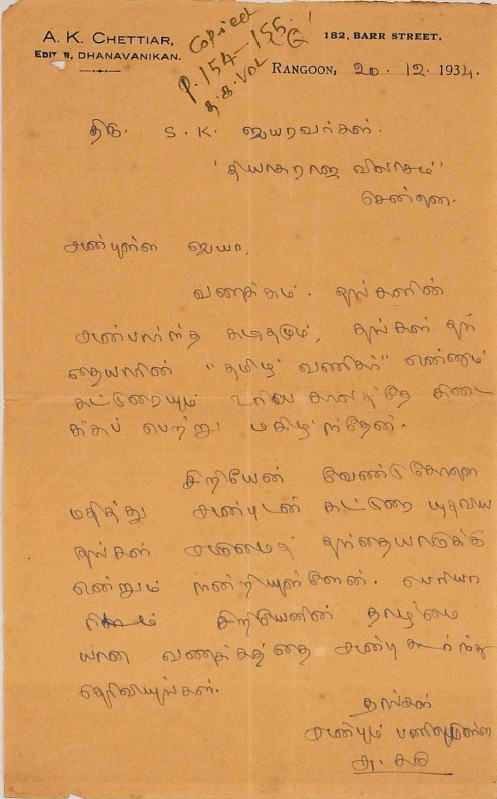 A. K. CHETTIAR,
EDITOR, DHANAVANIKAN.
Copied
P. 154-155
த.க. Vol
182, BARR STREET,
RANGOON, 20. 12. 1934.
திரு. S. K. ஐயரவர்கள்.
'தியாகராஜ விலாசம்'
சென்னை.
அன்புள்ள ஐயா,
வணக்கம். தங்களின்
அன்பார்ந்த கடிதமும், தங்கள் தந்
தையாரின் "தமிழ் வணிகர்" என்னும்
கட்டுரையும் உரிய காலத்தே கிடை
க்கப் பெற்று மகிழ்ந்தேன்.
சிறியேன் வேண்டுகோளை
மதித்து அன்புடன் கட்டுரை யுதவிய
தங்கள் அருமைத் தந்தையாருக்கு
என்றும் நன்றியுள்ளேன். பெரியா
ரிடம் சிறியேனின் தாழ்மை
யான வணக்கத்தை அன்பு கூர்ந்து
தெரிவியுங்கள்.
தங்கள்
அன்பும் பணிவுமுள்ள
அ. கரு